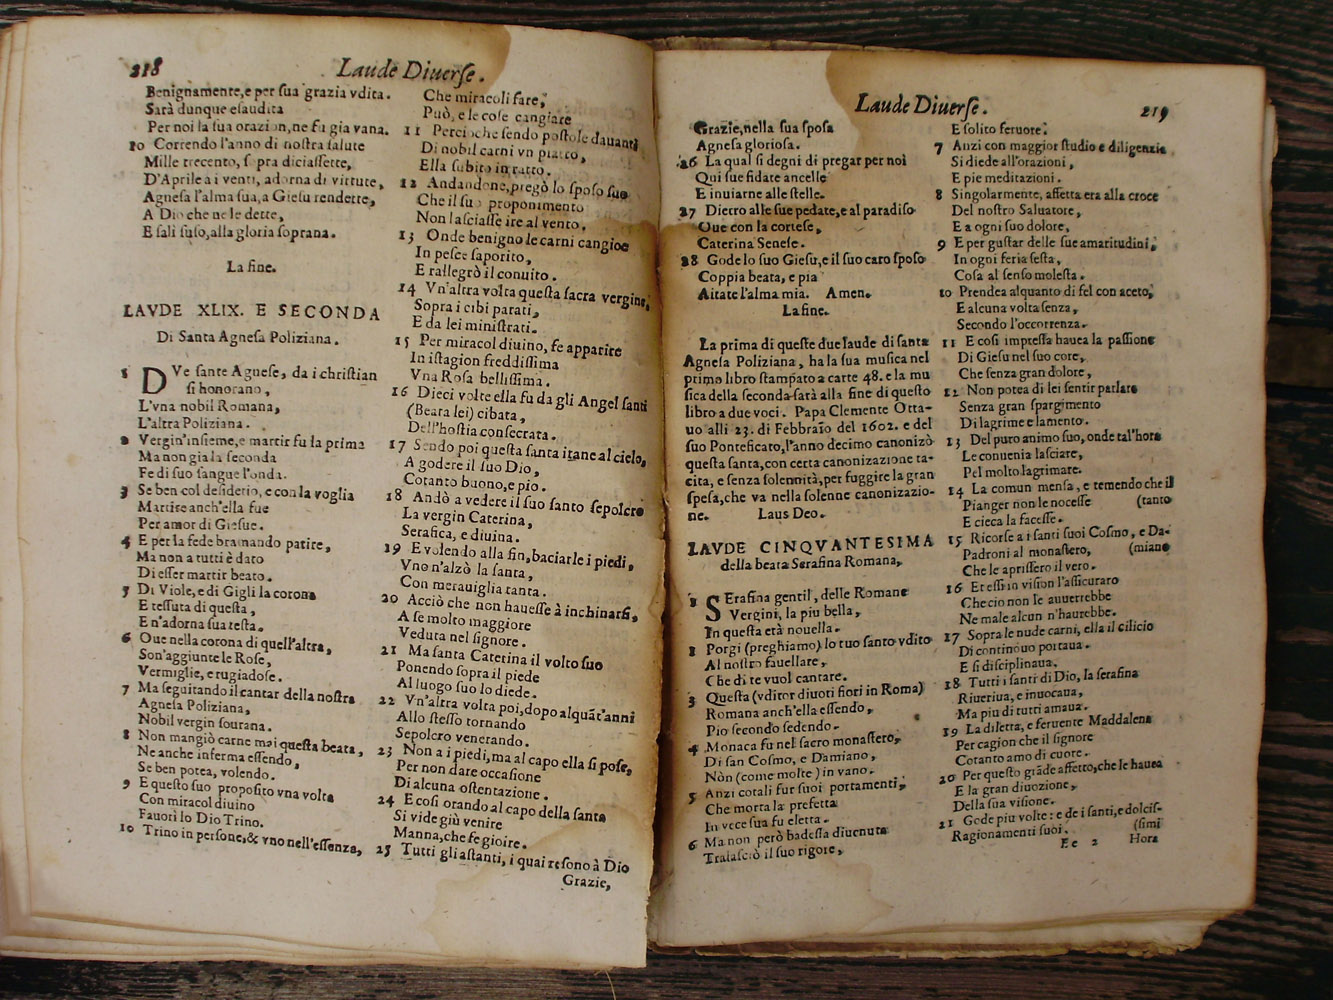 218
Laude Diuerſe.
Benignamente, e per ſua grazia vdita.
Sarà dunque eſaudita
Per noi la ſua orazion, ne fu gia vana.
20 Correndo l'anno di noſtra ſalute
Mille trecento, ſopra diciaſſette,
D'Aprile a i venti, adorna di virtute,
Agneſa l'alma ſua, a Gieſu rendette,
A Dio che ne le dette,
E ſali ſuſo, alla gloria ſoprana.
La fine.
LAVDE XLIX. E SECONDA
Di Santa Agneſa Poliziana.
1 DVe ſante Agneſe, da i chriſtian
ſi honorano,
L'vna nobil Romana,
L'altra Poliziana.
2 Vergin'inſieme, e martir fu la prima
Ma non gia la ſeconda
Fe di ſuo ſangue l'onda.
3 Se ben col deſiderio, e con la voglia
Martire anch'ella fue
Per amor di Gieſue.
4 E per la fede bramando patire,
Ma non a tutti è dato
Di eſſer martir beato.
5 Di Viole, e di Gigli la corona
E teſſuta di queſta,
E n'adorna ſua teſta.
6 Oue nella corona di quell'altra,
Son'aggiunte le Roſe,
Vermiglie, e rugiadoſe.
7 Ma ſeguitando il cantar della noſtra
Agneſa Poliziana,
Nobil vergin ſourana.
8 Non mangiò carne mai queſta beata,
Ne anche inferma eſſendo,
Se ben potea, volendo.
9 E queſto ſuo propoſito vna volta
Con miracol diuino
Fauorì lo Dio Trino.
10 Trino in perſone, & vno nell'eſſenza,
Che miracoli fare,
Può, e le coſe cangiare
11 Percioche ſendo poſtole dauanti
Di nobil carni vn piatto,
Ella ſubito in ratto.
12 Andandone, pregò lo ſpoſo ſuo
Che il ſuo proponimento
Non laſciaſſe ire al vento.
13 Onde benigno le carni cangioe
In peſce ſaporito,
E rallegrò il conuito.
14 Vn'altra volta queſta ſacra vergine,
Sopra i cibi parati,
E da lei miniſtrati.
15 Per miracol diuino, fe apparire
In iſtagion freddiſſima
Vna Roſa belliſſima.
16 Dieci volte ella fu da gli Angel ſanti
(Beata lei) cibata,
Dell'hoſtia conſecrata.
17 Sendo poi queſta ſanta itane al cielo,
A godere il ſuo Dio,
Cotanto buono, e pio.
18 Andò a vedere il ſuo ſanto ſepolcro
La vergin Caterina,
Serafica, e diuina.
19 E volendo alla fin, baciarle i piedi,
Vno n'alzò la ſanta,
Con merauiglia tanta.
20 Acciò che non haueſſe à inchinarſi,
A ſe molto maggiore
Veduta nel ſignore.
21 Ma ſanta Caterina il volto ſuo
Ponendo ſopra il piede
Al luogo ſuo lo diede.
22 Vn'altra volta poi, dopo alquãt'anni
Allo ſteſſo tornando
Sepolcro venerando.
23 Non a i piedi, ma al capo ella ſi poſe,
Per non dare occaſione
Di alcuna oſtentazione.
24 E coſi orando al capo della ſanta
Si vide giù venire
Manna, che fe gioire.
25 Tutti gli aſtanti, i quai reſono à Dio
Grazie,
Laude Diuerſe.
219
Grazie, nella ſua ſpoſa
Agneſa glorioſa.
26 La qual ſi degni di pregar per noi
Qui ſue fidate ancelle
E inuiarne alle ſtelle.
27 Dietro alle ſue pedate, e al paradiſo
Oue con la corteſe,
Caterina Seneſe.
28 Gode lo ſuo Gieſu, e il ſuo caro ſpoſo
Coppia beata, e pia
Aitate l'alma mia. Amen.
La fine.
La prima di queſte due laude di ſanta
Agneſa Poliziana, ha la ſua muſica nel
primo libro ſtampato a carte 48. e la mu
ſica della ſeconda ſarà alla fine di queſto
libro a due voci. Papa Clemente Otta-
uo alli 23. di Febbraio del 1602. e del
ſuo Ponteficato, l'anno decimo canonizò
queſta ſanta, con certa canonizazione ta-
cita, e ſenza ſolennità, per fuggire la gran
ſpeſa, che va nella ſolenne canonizazio-
ne. Laus Deo.
LAVDE CINQVANTESIMA
della beata Serafina Romana,
1 SErafina gentil, delle Romane
Vergini, la piu bella,
In queſta età nouella.
2 Porgi (preghiamo) lo tuo ſanto vdito
Al noſtro fauellare,
Che di te vuol cantare.
3 Queſta (vditor diuoti fiori in Roma)
Romana anch'ella eſſendo,
Pio ſecondo ſedendo.
4 Monaca fu nel ſacro monaſtero,
Di ſan Coſmo, e Damiano,
Nòn (come molte) in vano.
5 Anzi cotali fur ſuoi portamenti,
Che morta la prefetta
In vece ſua fu eletta.
6 Ma non però badeſſa diuenuta
Tralaſciò il ſuo rigore,
E ſolito feruore.
7 Anzi con maggior ſtudio e diligenzia
Si diede all'orazioni,
E pie meditazioni.
8 Singolarmente, affetta era alla croce
Del noſtro Saluatore,
E a ogni ſuo dolore,
9 E per guſtar delle ſue amaritudini,
In ogni feria ſeſta,
Coſa al ſenſo moleſta.
10 Prendea alquanto di fel con aceto,
E alcuna volta ſenza,
Secondo l'occorrenza.
11 E coſi impreſſa hauea la paſſione
Di Gieſu nel ſuo core,
Che ſenza gran dolore,
12 Non potea di lei ſentir parlare
Senza gran ſpargimento
Di lagrime e lamento.
13 Del puro animo ſuo, onde tal'hora
Le conuenia laſciare,
Pel molto lagrimare.
14 La comun menſa, e temendo che il
Pianger non le noceſſe (tanto
E cieca la faceſſe.
15 Ricorſe a i ſanti ſuoi Coſmo, e Da-
Padroni al monaſtero, (miano
Che le apriſſero il vero.
16 Et eſſi in viſion l'aſſicuraro
Che cio non le auuerrebbe
Ne male alcun n'haurebbe.
17 Sopra le nude carni, ella il cilicio
Di continouo portaua.
E ſi diſciplinaua.
18 Tutti i ſanti di Dio, la ſerafina
Riueriua, e inuocaua,
Ma piu di tutti amaua.
19 La diletta, e feruente Maddalena
Per cagion che il ſignore
Cotanto amo di cuore.
20 Per queſto grãde affetto, che le hauea
E la gran diuozione,
Della ſua viſione.
21 Gode piu volte: e de i ſanti, e dolciſ-
Ragionamenti ſuoi. (ſimi
Ee 2 Hora